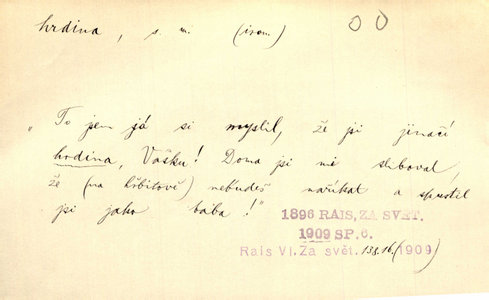 hrdina, s. m. (iron.)
„To jsem já si myslil, že jsi jinačí
hrdina, Vašku! Doma jsi mě sliboval,
že (na hřbitově) nebudeš naříkat a spustil
jsi jako bába!"
1896 RAIS, ZA SVĚT.
1909 SP. 6.
Rais VI. Za svět. 138.16. (1909)